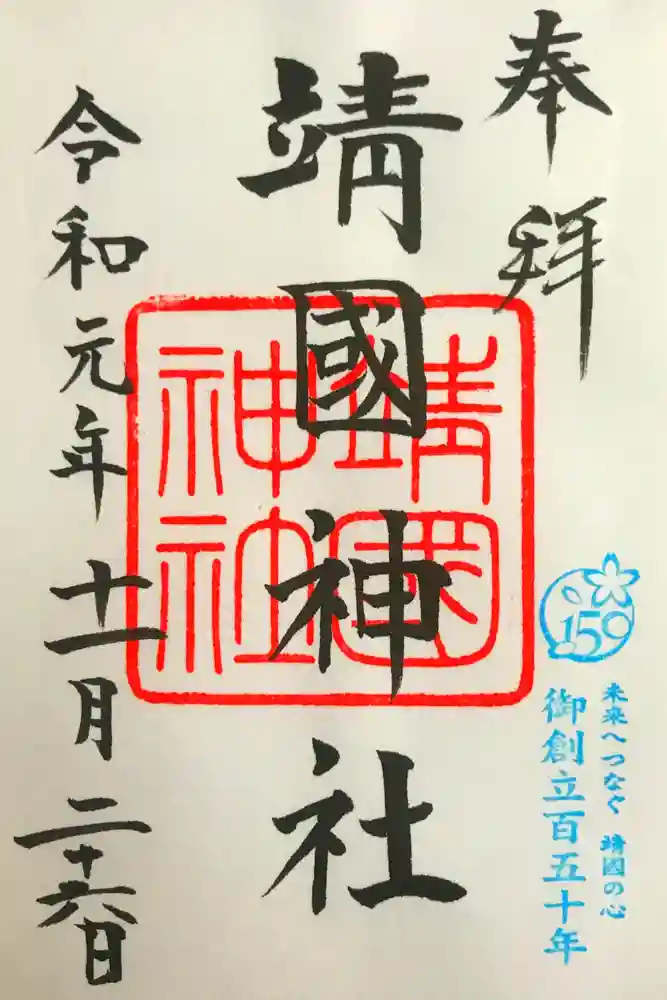 奉拝
150
未来へつなぐ 靖國の心
御創立百五十年
靖國神社
靖國神社
令和元年十一月二十六日